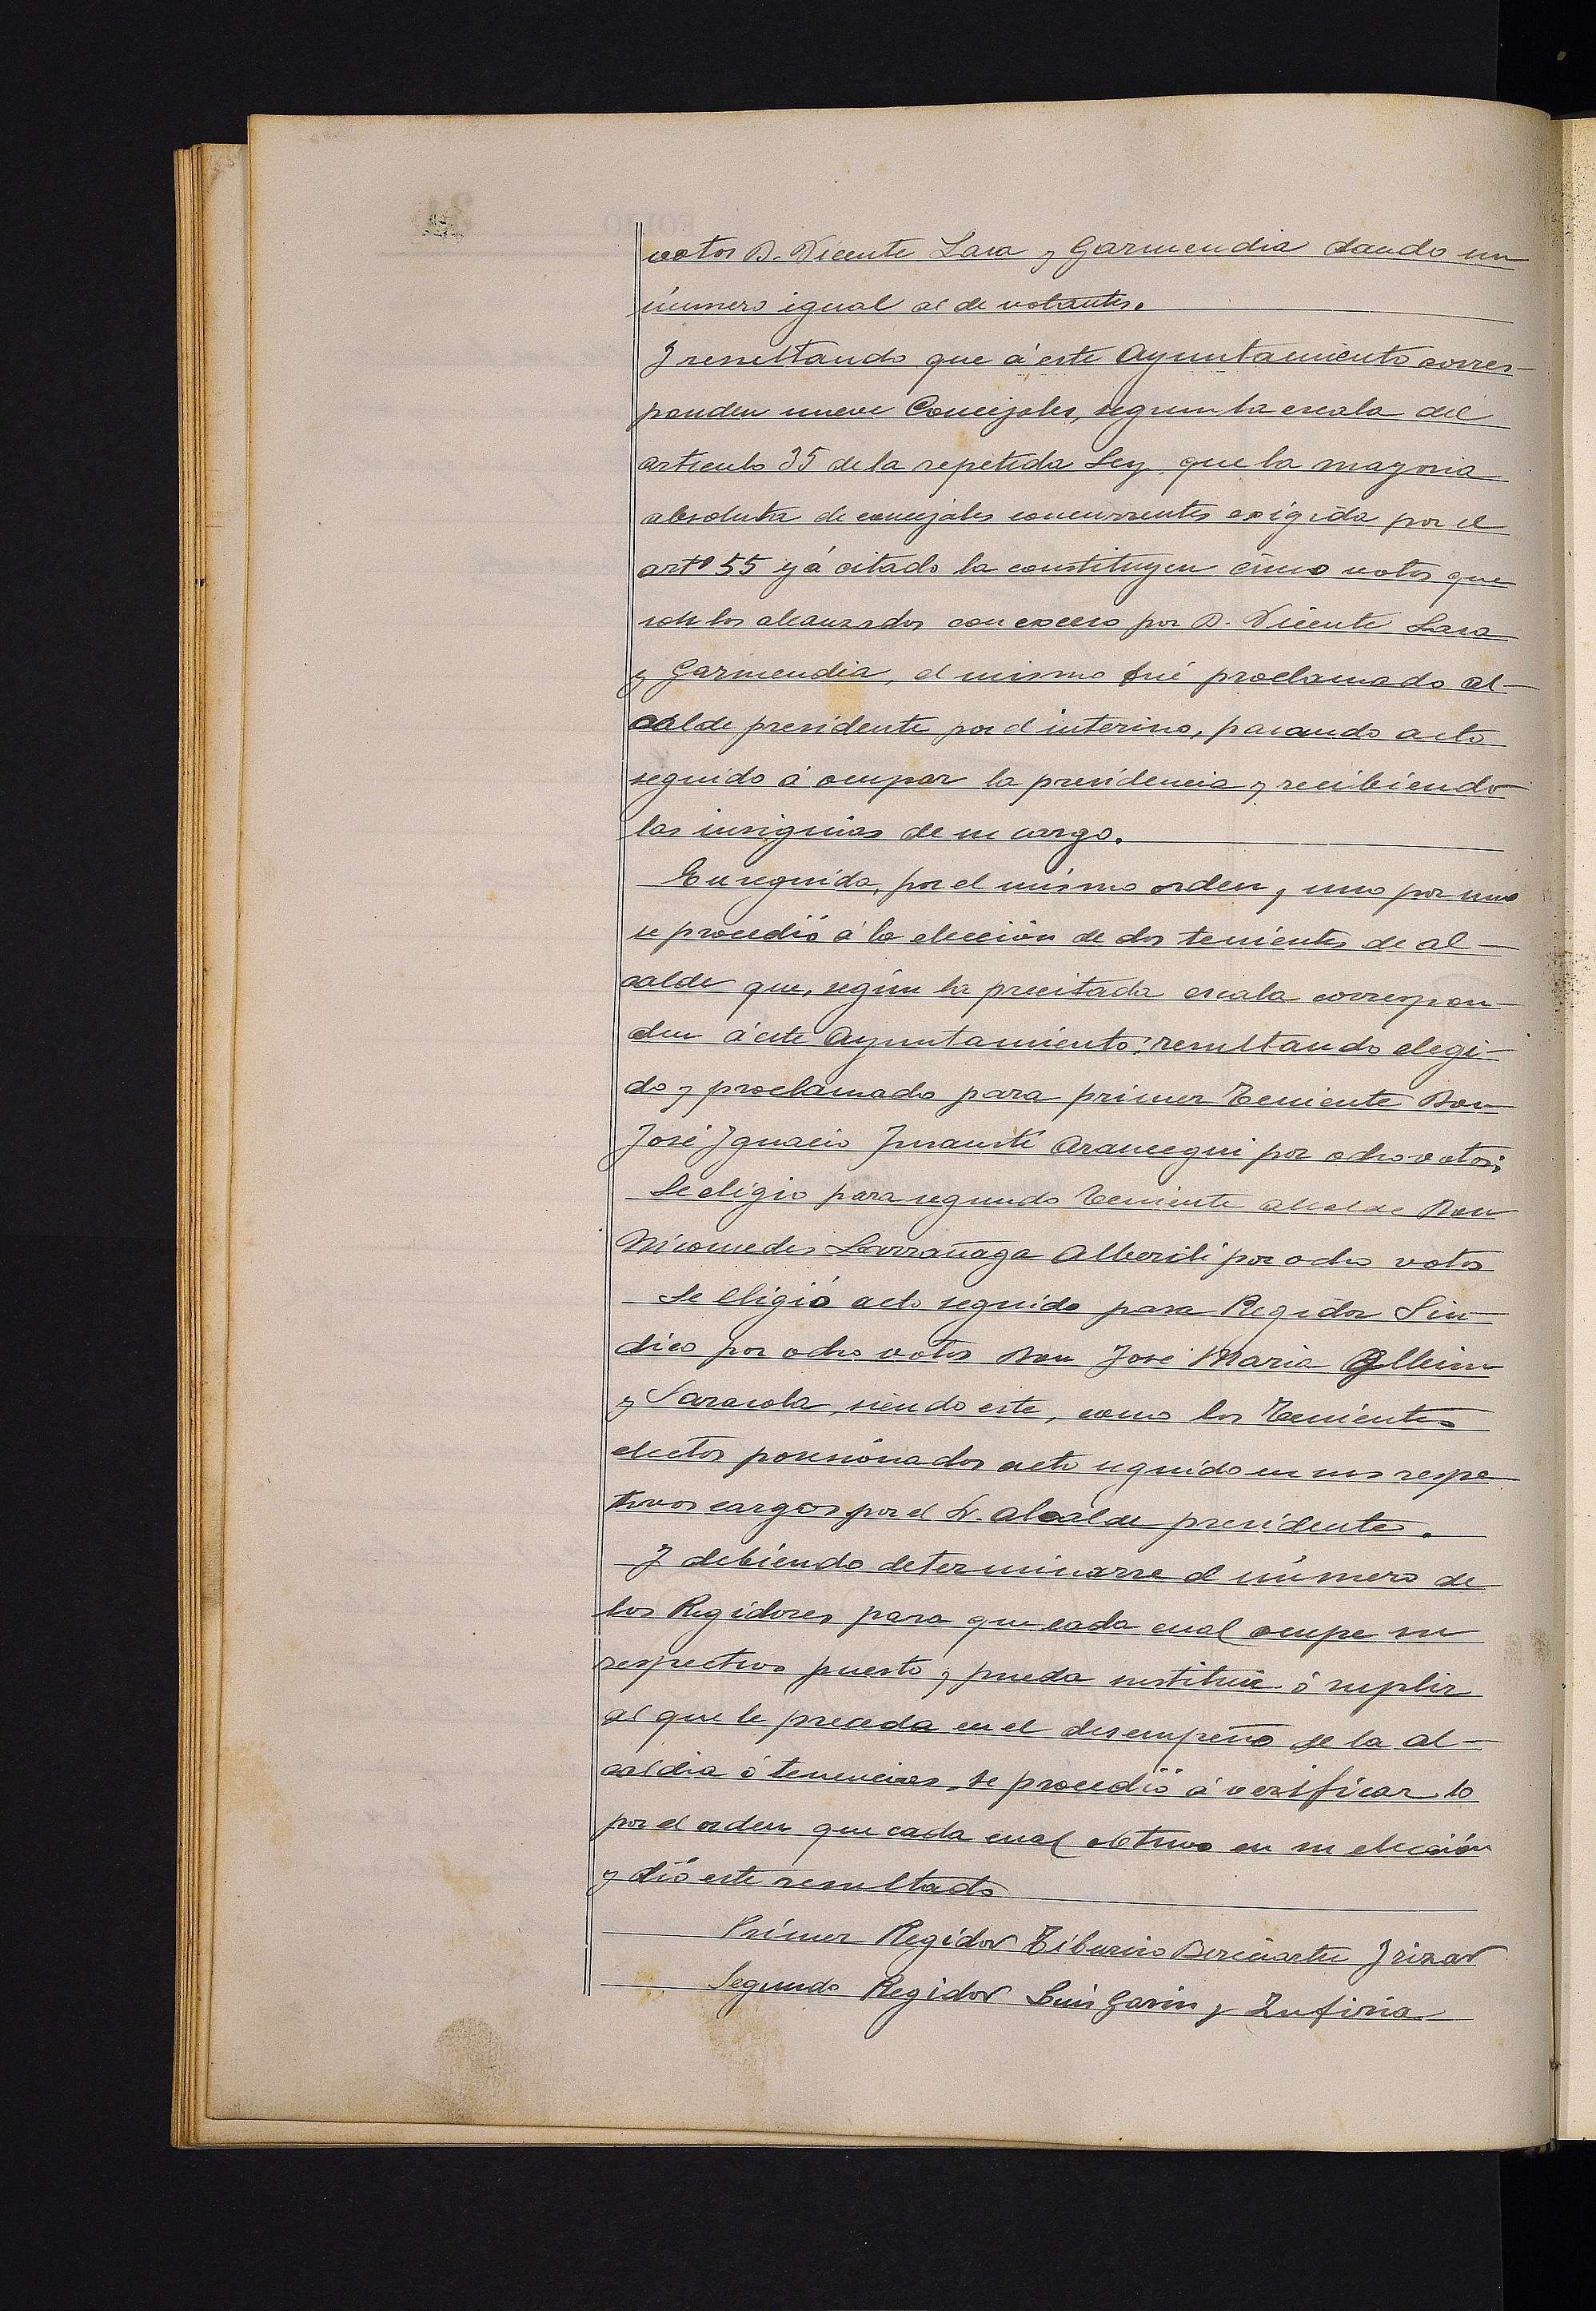 votos D. Vicente Lasa y Garmendia dando un
número igual al de votantes.
Y resultando que á este Ayuntamiento corres-
ponden nueve Concejales, segun la escala del
articulo 35 de la repetida Ley, que la mayoria
absoluta de concejales concurrentes exigida por el
artº 55 yá citado la constituyen cinco votos que
son los alcanzados con exceso por D. Vicente Lasa
y Garmendia, el mismo fué proclamado al-
calde presidente por el interino, pasando acto
seguido á ocupar la presidencia y recibiendo
las insignias de su cargo.
En seguida, por el mismo orden, y uno por uno
se procedió á la elección de dos tenientes de al-
calde que, según la precitada escala correspon-
den á este Ayuntamiento; resultando elegi-
do y proclamado para primer Teniente Don
José Ignacio Inausti Arancegui por ocho votos;
Se eligio para segundo Teniente alcalde Don
Nicomedes Larrañaga Alberdi por ocho votos
Se eligió acto seguido para Regidor Sin-
dico por ocho votos Don José Maria
y Saracola, siendo este, como los Tenientes
electos posesionados acto seguido en sus respe
tivos cargos por el Sr. Alcalde presidente.
Y debiendo determinarse el número de
los Regidores para que cada cual ocupe su
respectivo puesto y pueda sustituir ó suplir
al que le preceda en el desempeño de la al-
caldia ó tenencias, se procedió á verificar lo
por el orden que cada cual obtuvo en su elección
y dió este resultado
Primer Regidor Tiburcio Beriñartu Irizar
Segundo Regidor Luis Garin y Zufiria